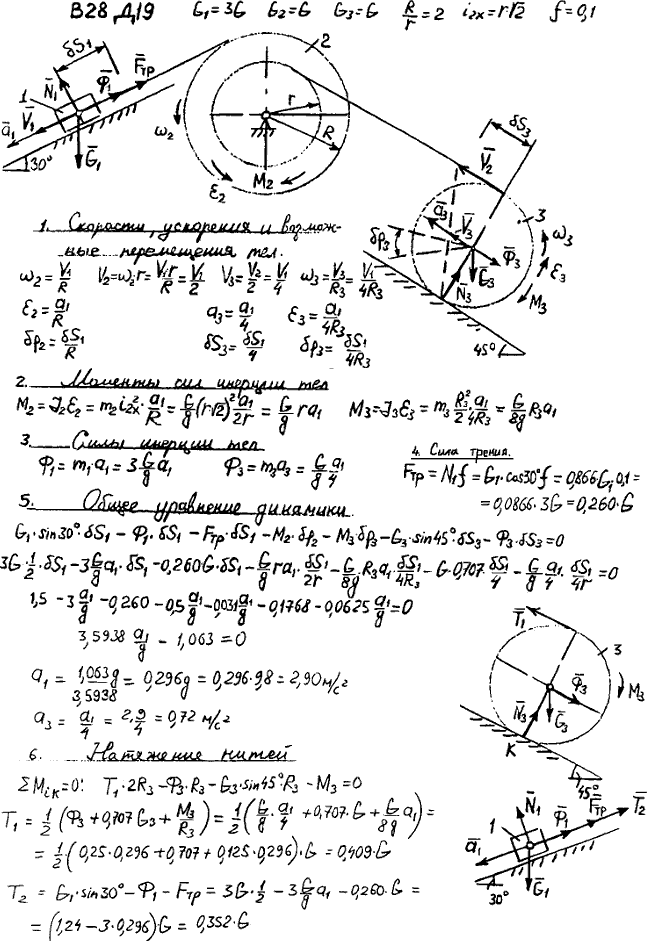 В28 Д19 G₁=3G G₂=G G₃=G R/r=2 i₂ₓ=r√2 f=0,1
δS₁
N̄₁ Φ̄₁ F̄тр
1 V̄₁
ā₁
Ḡ₁
30°
2
r
R
ω₂
ε₂
M₂
δS₃
V̄₂
ā₃ 3
V̄₃
δφ₃
Φ̄₃
ω₃
Ḡ₃
ε₃
N̄₃
M₃
45°
1. Скорости, ускорения и возмож-
ные перемещения тел.
ω₂=V₁/R V₂=ω₂·r=V₁r/R=V₁/2 V₃=V₂/2=V₁/4 ω₃=V₃/R₃=V₁/4R₃
ε₂=a₁/R a₃=a₁/4 ε₃=a₁/4R₃
δφ₂=δS₁/R δS₃=δS₁/4 δφ₃=δS₁/4R₃
2. Моменты сил инерции тел
M₂=J₂ε₂=m₂i₂ₓ²·a₁/R=G/g(r√2)²a₁/2r=G/g ra₁ M₃=J₃ε₃=m₃R₃²/2·a₁/4R₃=G/8g R₃a₁
3. Силы инерции тел
Φ₁=m₁·a₁=3G/g a₁ Φ₃=m₃a₃=G/g a₁/4
4. Сила трения.
Fтр=N₁f=G₁·cos30°f=0,866G₁0,1=
=0,0866·3G=0,260·G
5. Общее уравнение динамики
G₁·sin30°·δS₁-Φ₁·δS₁-Fтр·δS₁-M₂·δφ₂-M₃δφ₃-G₃·sin45°·δS₃-Φ₃·δS₃=0
3G·1/2·δS₁-3G/g a₁·δS₁-0,260G·δS₁-G/g ra₁·δS₁/2r-G/8g·R₃a₁·δS₁/4R₃-G·0,707·δS₁/4-G/g a₁/4·δS₁/4r=0
1,5-3a₁/g-0,260-0,5a₁/g-0,031a₁/g-0,1768-0,0625a₁/g=0
3,5938 a₁/g-1,063=0
a₁=1,063g/3,5938=0,296g=0,296·9,8=2,90м/с²
a₃=a₁/4=2,9/4=0,72 м/с²
T̄₁
3
Φ̄₃
M₃
N̄₃
Ḡ₃
K
45°
6. Натяжение нитей
ΣMᵢₖ=0: T₁·2R₃-Φ₃·R₃-G₃·sin45°R₃-M₃=0
T₁=1/2(Φ₃+0,707G₃+M₃/R₃)=1/2(G/g·a₁/4+0,707·G+G/8g a₁)=
=1/2·(0,25·0,296+0,707+0,125·0,296)·G=0,409·G
T₂=G₁·sin30°-Φ₁-Fтр=3G·1/2-3G/g a₁-0,260·G=
=(1,24-3·0,296)·G=0,352·G
N̄₁ Φ̄₁ F̄тр T̄₂
1
ā₁
Ḡ₁
30°